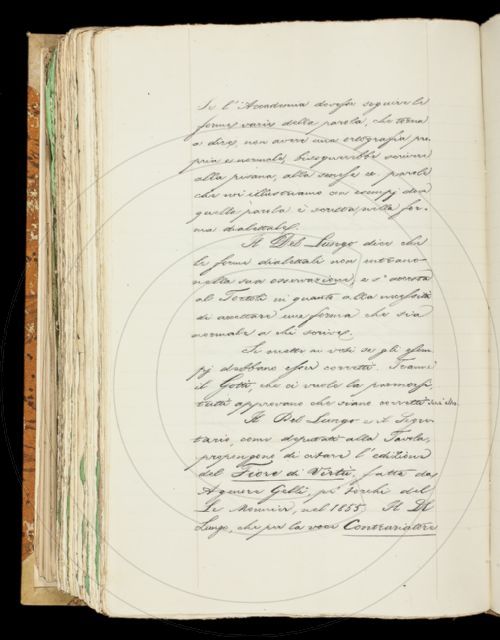 Se l'Accademia dovesse seguire le
forme varie della parola, che torna
a dire, non avere una ortografia pro
pria e normale, bisognerebbe scrivere
alla pisana, alla senese ec. parole
che noi illustriamo con esempj dove
quella parola è scritta nella for-
ma dialettale.
Il Del Lungo dice che
le forme dialettali non entrano
nella sua osservazione, e s'accosta
al Tortoli in quanto alla necessità
di accettare una forma che sia
normale a chi scrive.
Si mette ai voti se gli esem
pj debbano esser corretti. Tranne
il Gotti, che ci vuole la
tutti approvano che siano corretti
Il Del Lungo e il Segre
tario, come deputati alla Tavola,
propongono di citare l'edizione
del Fiore di Virtù, fatta da
Agenore Gelli, pe' torchi del
Le Monnier, nel 1855; Il Del
Lungo, che per la voce Contrariatore